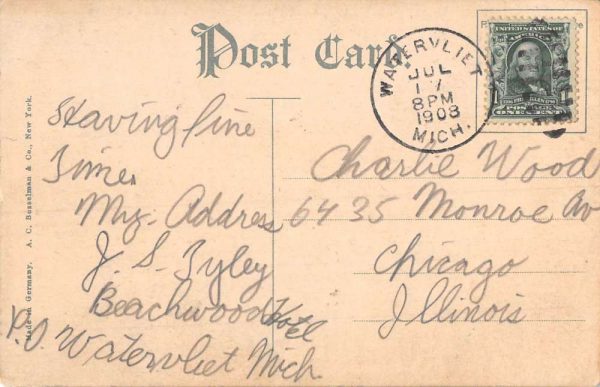 Post Card
WATERVLIET
JUL
17
8PM
1908
MICH.
UNITED STATES OF AMERICA
POSTAGE
ONE CENT
Having fine
Time.
My Address
J. S. Tyley
Beachwood Hotel
P.O. Watervliet Mich.
Charlie Wood
6435 Monroe Av
Chicago
Illinois
Made in Germany. A. C. Bosselman & Co., New York.